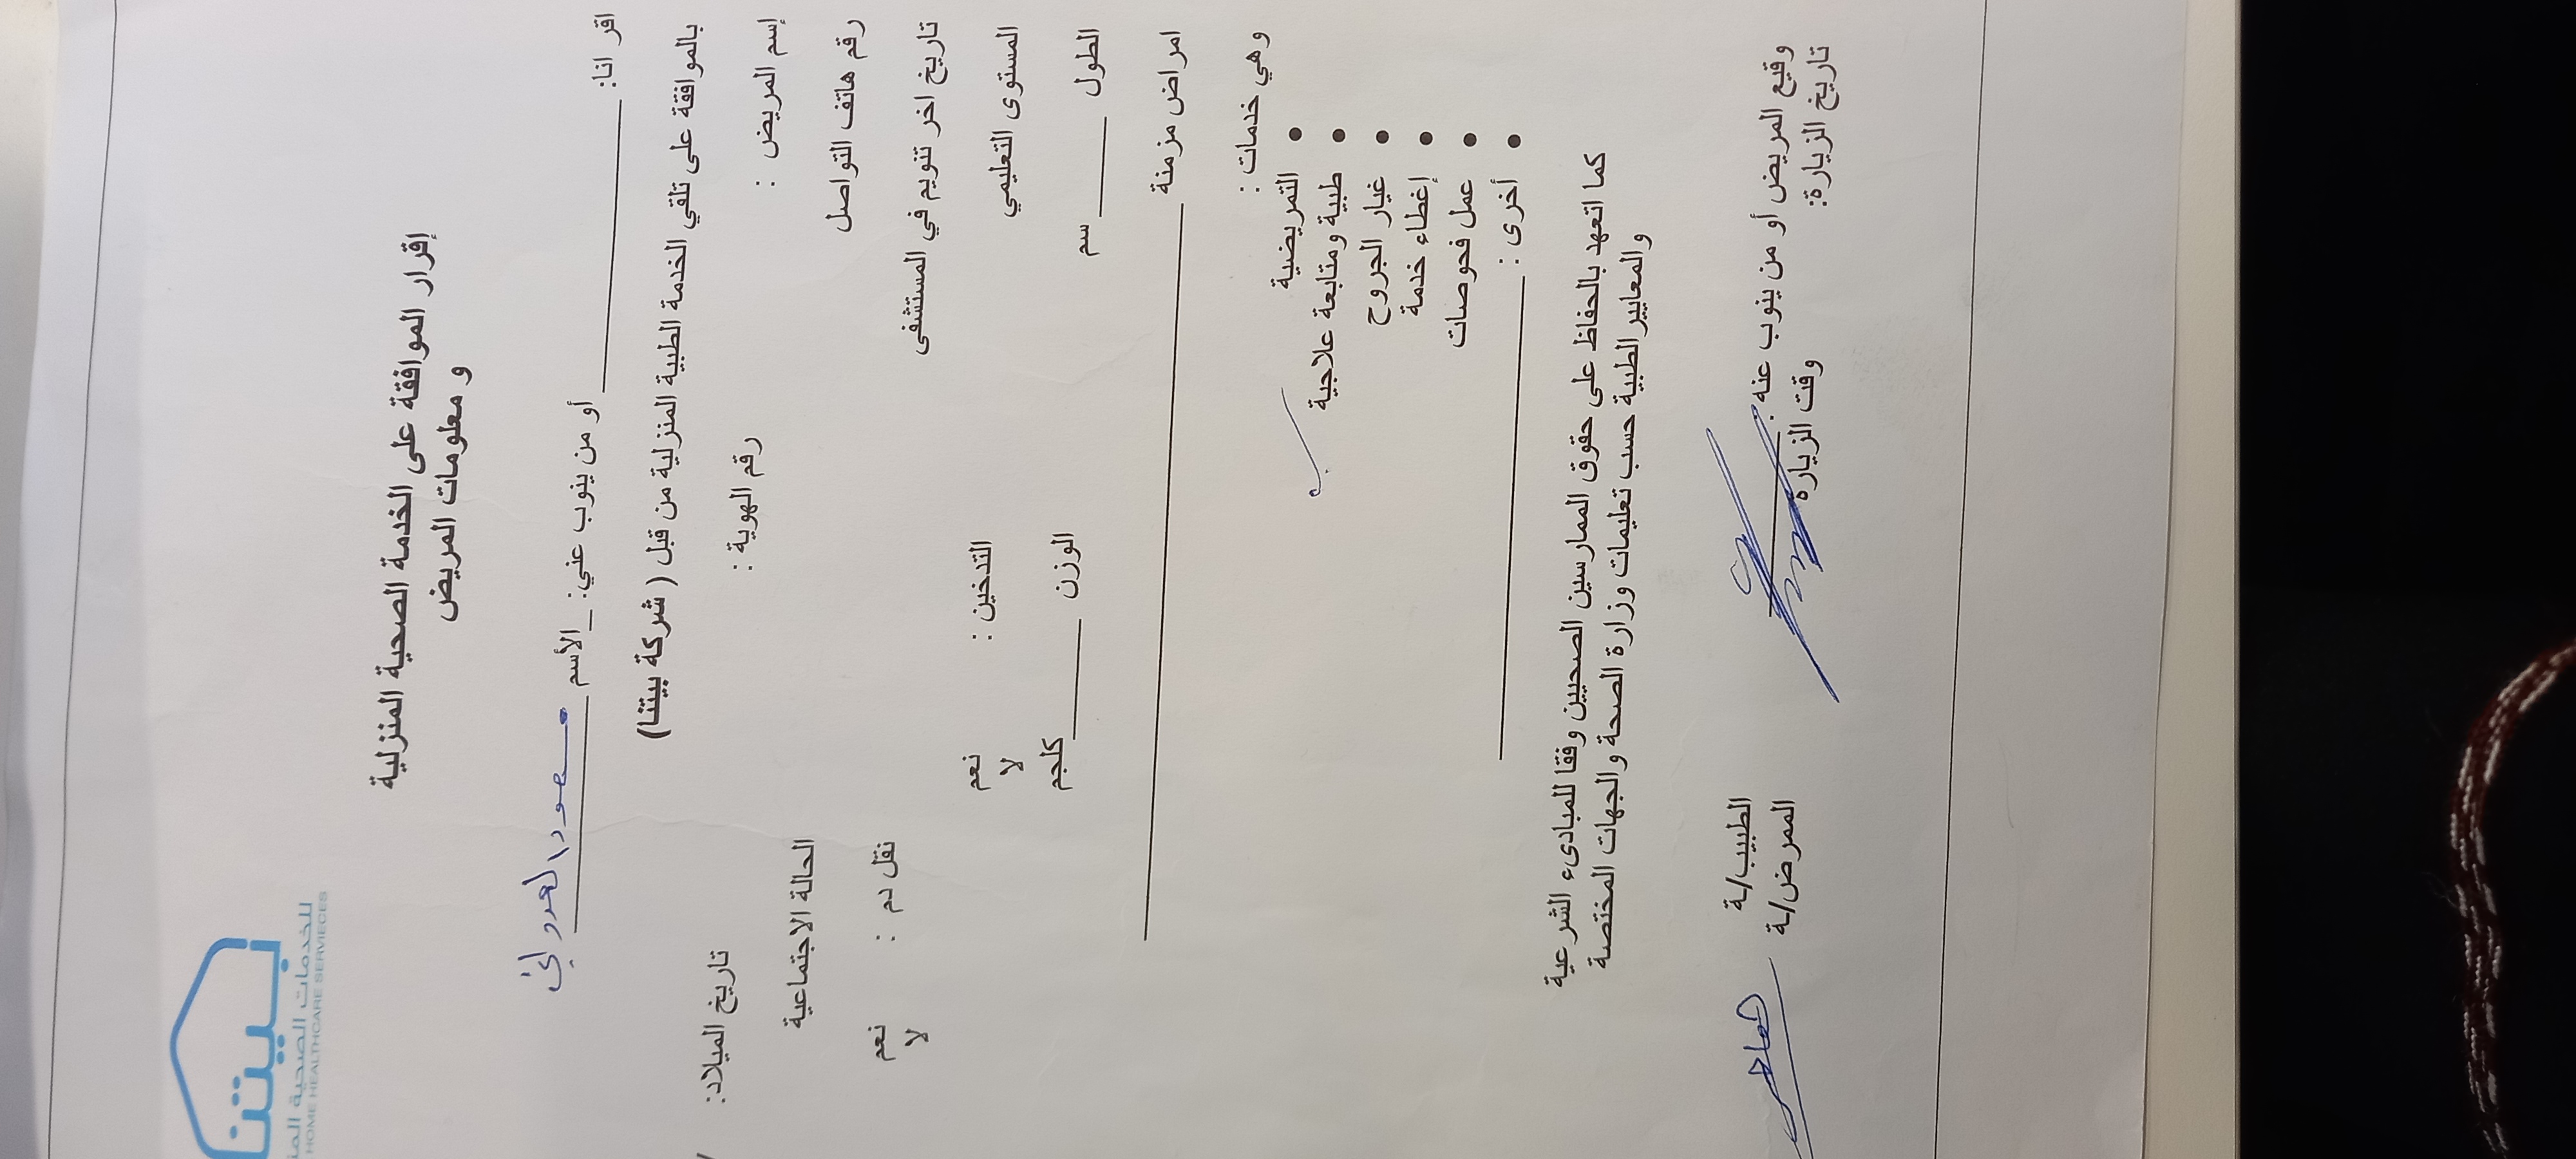 بيتنا
للخدمات الصحية المنـ
HOME HEALTHCARE SERVICES
إقرار الموافقة على الخدمة الصحية المنزلية
و معلومات المريض
اقر انا: ________ أو من ينوب عني: _ الأسم مسعود العدواني
بالموافقة على تلقي الخدمة الطبية المنزلية من قبل ( شركة بيتنا)
إسم المريض : رقم الهوية : تاريخ الميلاد:
رقم هاتف التواصل الحالة الاجتماعية
تاريخ اخر تنويم في المستشفى نقل دم : نعم
لا
المستوى التعليمي التدخين : نعم
لا
الطول ______ سم الوزن ______ كلجم
امراض مزمنة ________
وهي خدمات :
• التمريضية
• طبية ومتابعة علاجية
• غيار الجروح
• إغطاء خدمة
• عمل فحوصات
• أخرى : ________
كما اتعهد بالحفاظ على حقوق الممارسين الصحيين وفقا للمبادىء الشرعية
والمعايير الطبية حسب تعليمات وزارة الصحة والجهات المختصة
وقيع المريض أو من ينوب عنه : الطبيب/ة
تاريخ الزيارة: وقت الزيارة الممرض/ة